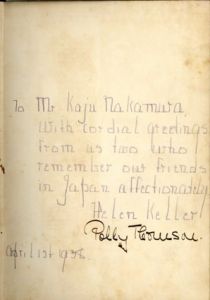 To Mr. Kaju Nakamura
With cordial greetings
from us two who
remember our friends
in Japan affectionately
Helen Keller
Polly Thomson.
April 1st 1936.